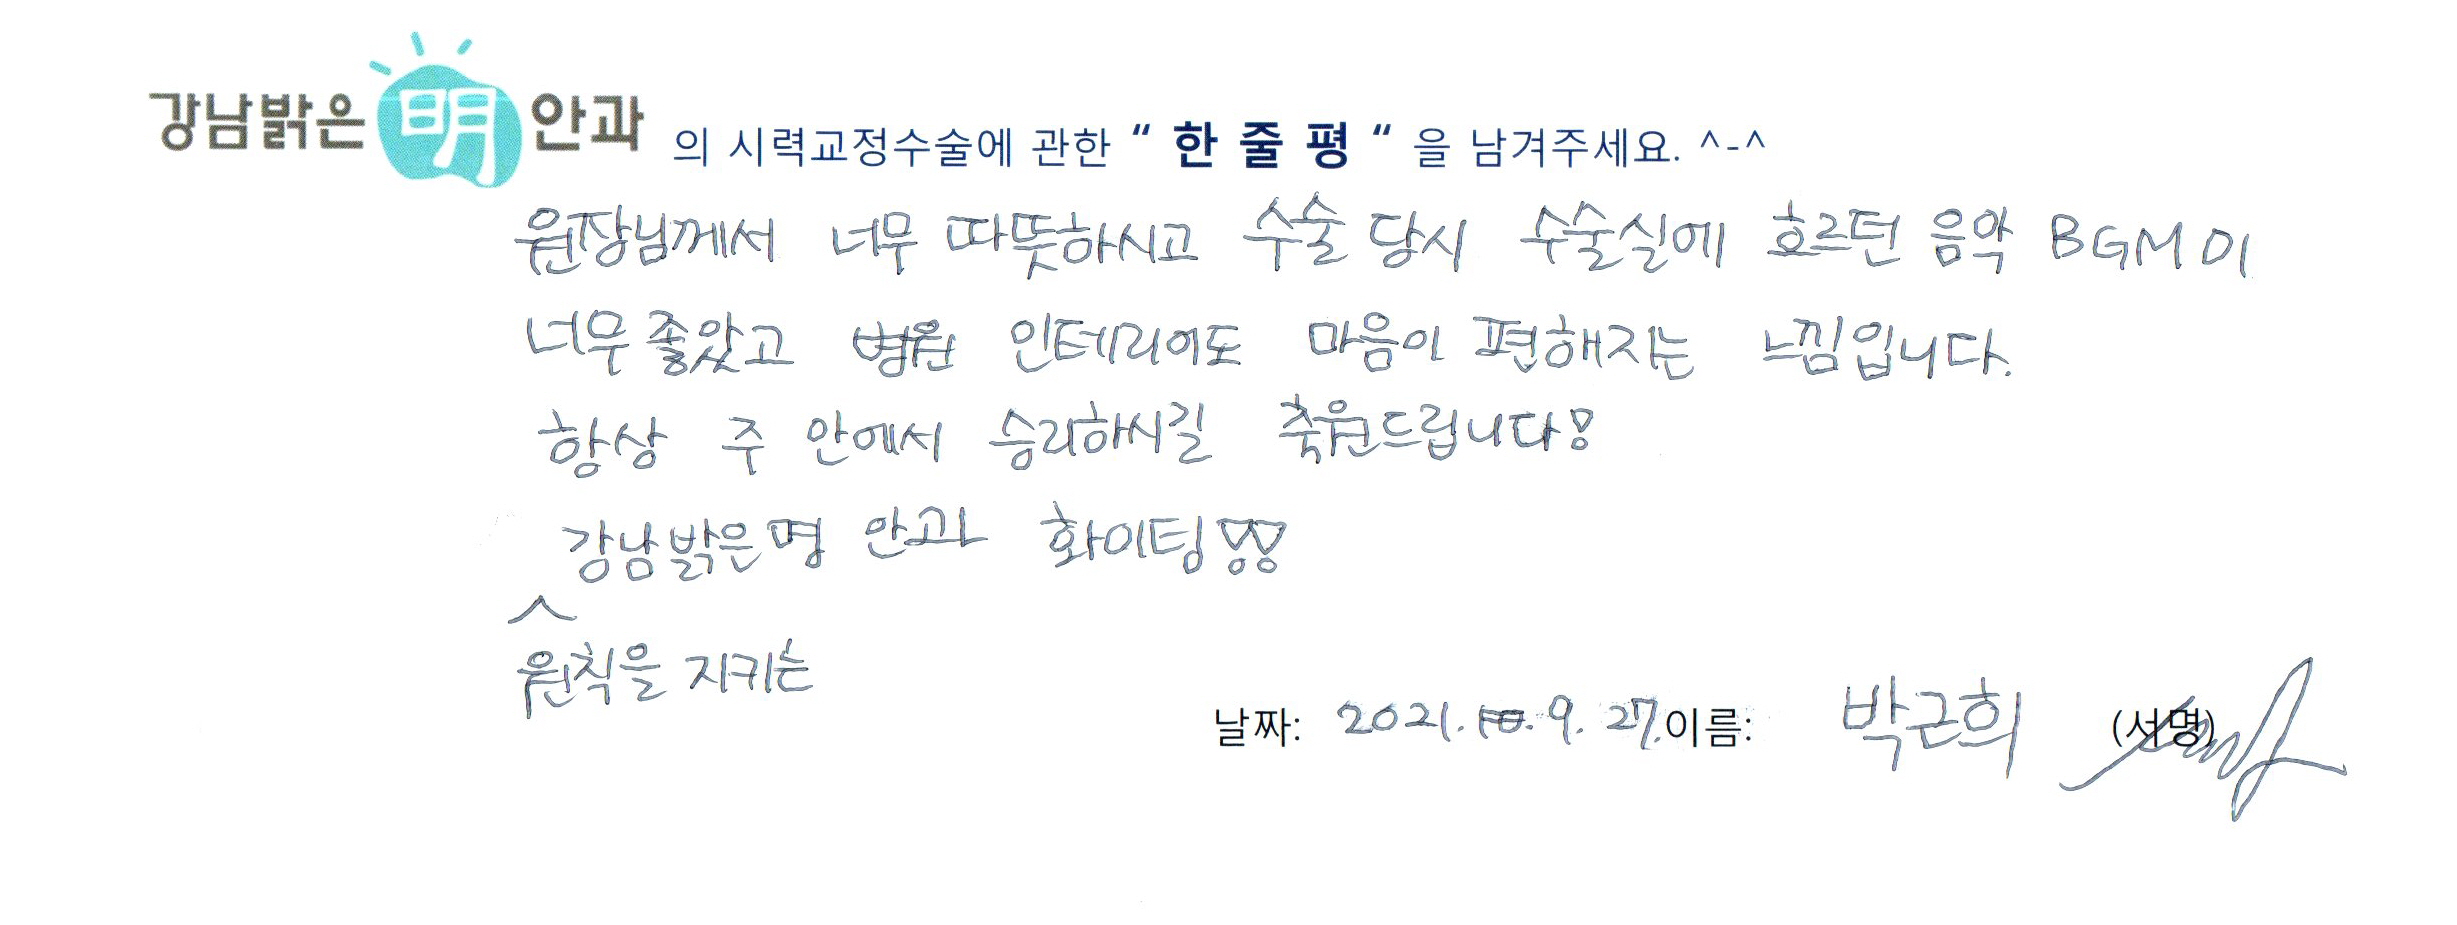 강남밝은明안과 의 시력교정수술에 관한 “ 한 줄 평 “ 을 남겨주세요. ^-^
원장님께서 너무 따뜻하시고 수술 당시 수술실에 흐르던 음악 BGM이
너무 좋았고 병원 인테리어도 마음이 편해지는 느낌입니다.
항상 주 안에서 승리하시길 축원드립니다!
강남밝은명 안과 화이팅!!
^
원칙을 지키는
날짜: 2021. 9. 27. 이름: 박근희 (서명)